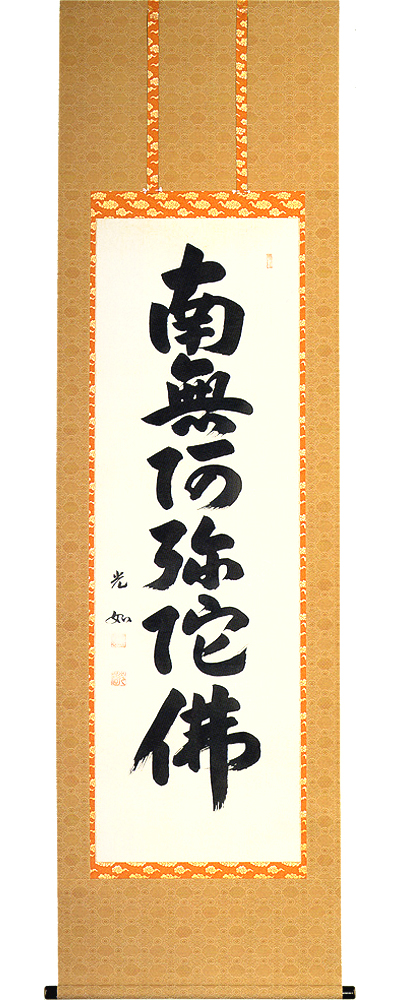 南無阿弥陀佛
光如